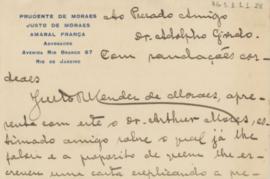 PRUDENTE DE MORAES
JUSTO DE MORAES
AMARAL FRANÇA
ADVOGADOS
AVENIDA RIO BRANCO 67
RIO DE JANEIRO
Ao Prezado Amigo
Dr. Adolpho
Com saudações cor-
deaes
Justo Mendes de Moraes, apre-
senta com este o Dr. Arthur Moses, es-
timado amigo sobre o qual já lhe
falou e a proposito de quem lhe es-
creveu uma carta explicando a